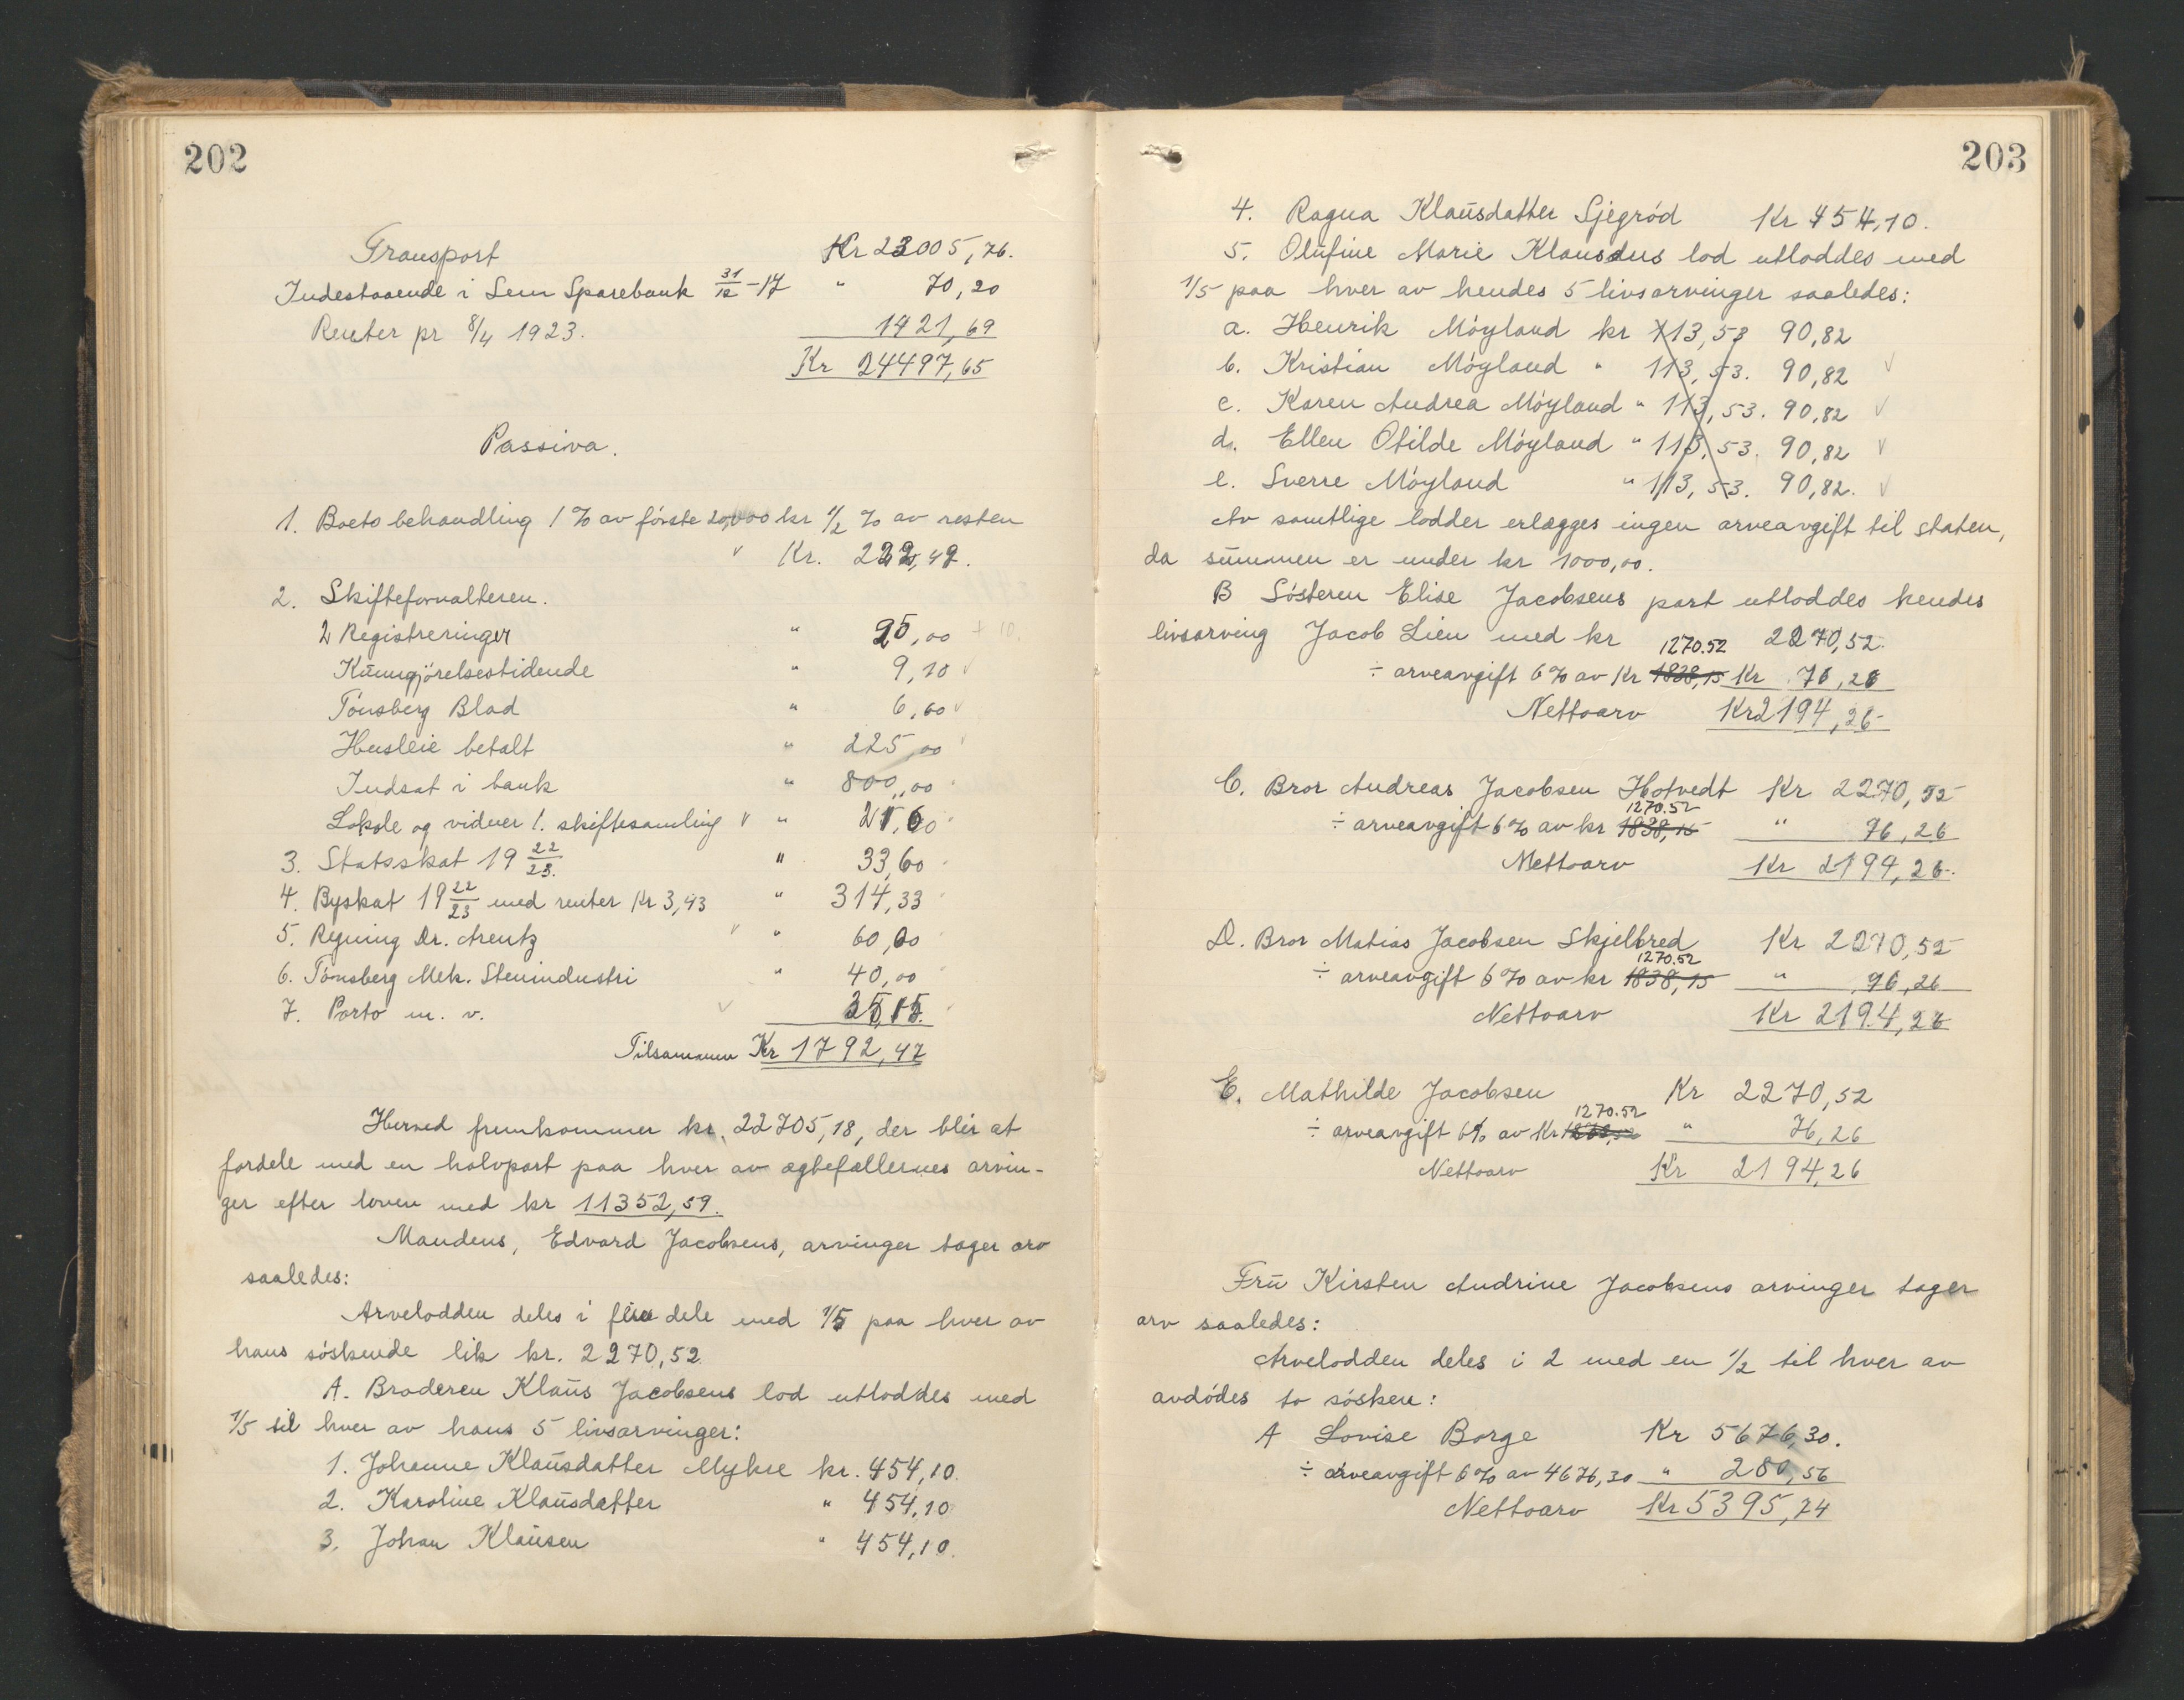 202
Transport Kr 23005,76.
Indestaaende i Sem Sparebank 31/12-17 " 70,20
Renter pr 8/4 1923. 1421,69
Kr 24497,65
Passiva.
1. Boets behandling 1 % av første 20,000 kr 1/2 % av resten
Kr. 222,49.
2. Skifteforvalteren.
2 Registreringer " 25,00 + 10.
Kungjørelsestidende " 9,20
Tønsberg Blad " 6,60
Husleie betalt " 225,00
Indsat i bank " 800,00
Lokale og vidner 1. skiftesamling " 21,00
3. Statsskat 19 22/23. " 33,60
4. Byskat 19 22/23 med renter Kr 3,93 " 314,33
5. Regning Dr. Arentz " 60,00
6. Tønsberg Mek. Stenindustri " 40,00
7. Porto m. v. 35,15.
Tilsammen Kr 1792,47
Herved fremkommer kr. 22705,18, der blir at
fordele med en halvpart paa hver av egtefællernes arvin-
ger efter loven med kr 11352,59.
Mandens, Edvard Jacobsens, arvinger tager arv
saaledes:
Arvelodden deles i fem dele med 1/5 paa hver av
hans søskende lik kr. 2270,52.
A. Broderen Klaus Jacobsens lod utloddes med
1/5 til hver av hans 5 livsarvinger:
1. Johanne Klausdatter Myhre kr. 454,10.
2. Karoline Klausdatter " 454,10
3. Johan Klausen " 454,10.
203
4. Ragna Klausdatter Gjegrød Kr 454,10.
5. Olufine Marie Klausdns lod utloddes med
1/5 paa hver av hendes 5 livsarvinger saaledes:
a. Henrik Møyland kr 113,53 90,82
b. Kristian Møyland " 113,53. 90,82
c. Karen Andrea Møyland " 113,53. 90,82
d. Ellen Otilde Møyland " 113,53. 90,82
e. Sverre Møyland " 113,53. 90,82.
Av samtlige lodder erlægges ingen arveavgift til staten,
da summen er under kr 1000,00.
B Søsteren Elise Jacobsens part utloddes hendes
livsarving Jacob Lien med kr 2270,52.
1270.52
÷ arveavgift 6% av Kr 1838,15 Kr 76,26
Nettoarv Kr 2194,26
C. Bror Andreas Jacobsen Hotvedt Kr 2270,52
1270.52
÷ arveavgift 6% av kr 1838,15 " 76,26
Nettoarv Kr 2194,26.
D. Bror Matias Jacobsen Skjelbred Kr 2270,52
1270.52
÷ arveavgift 6% av kr 1838,15 " 76,26
Nettoarv Kr 2194,26
E. Mathilde Jacobsen Kr 2270,52
1270.52
÷ arveavgift 6% av Kr " 76,26
Nettoarv Kr 2194,26
Fru Kirsten Andrine Jacobsens arvinger tager
arv saaledes:
Arvelodden deles i 2 med en 1/2 til hver av
avdødes to søsken:
A Lovise Borge Kr 5676,30.
÷ arveavgift 6% av 4676,30 " 280,56
Nettoarv Kr 5395,74